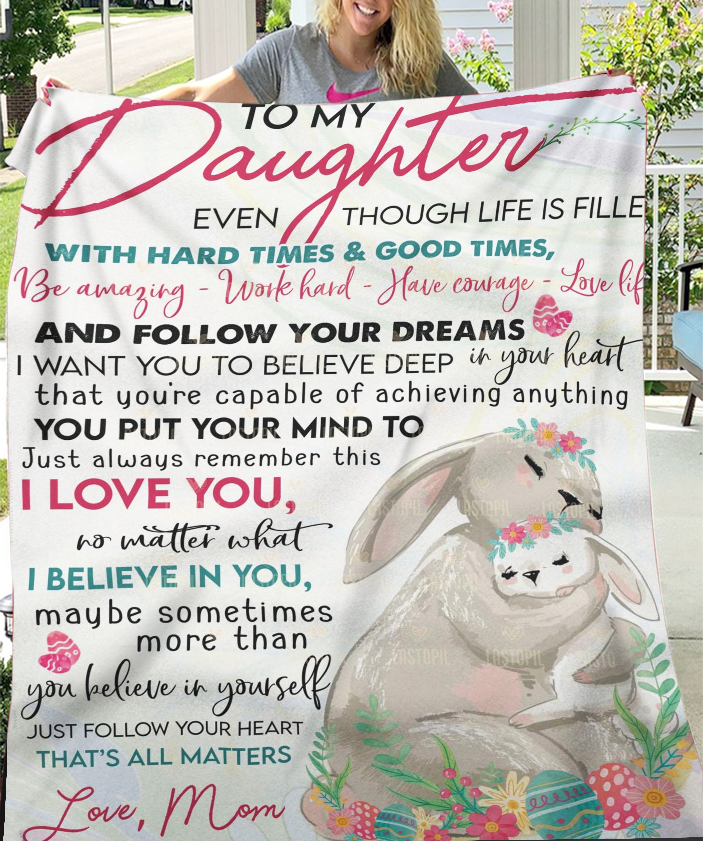 TO MY
Daughter
EVEN THOUGH LIFE IS FILLE
WITH HARD TIMES & GOOD TIMES,
Be amazing - Work hard - Have courage - Love lif
AND FOLLOW YOUR DREAMS
I WANT YOU TO BELIEVE DEEP in your heart
that you're capable of achieving anything
YOU PUT YOUR MIND TO
Just always remember this
I LOVE YOU,
no matter what
I BELIEVE IN YOU,
maybe sometimes
more than
you believe in yourself
JUST FOLLOW YOUR HEART
THAT'S ALL MATTERS
Love, Mom